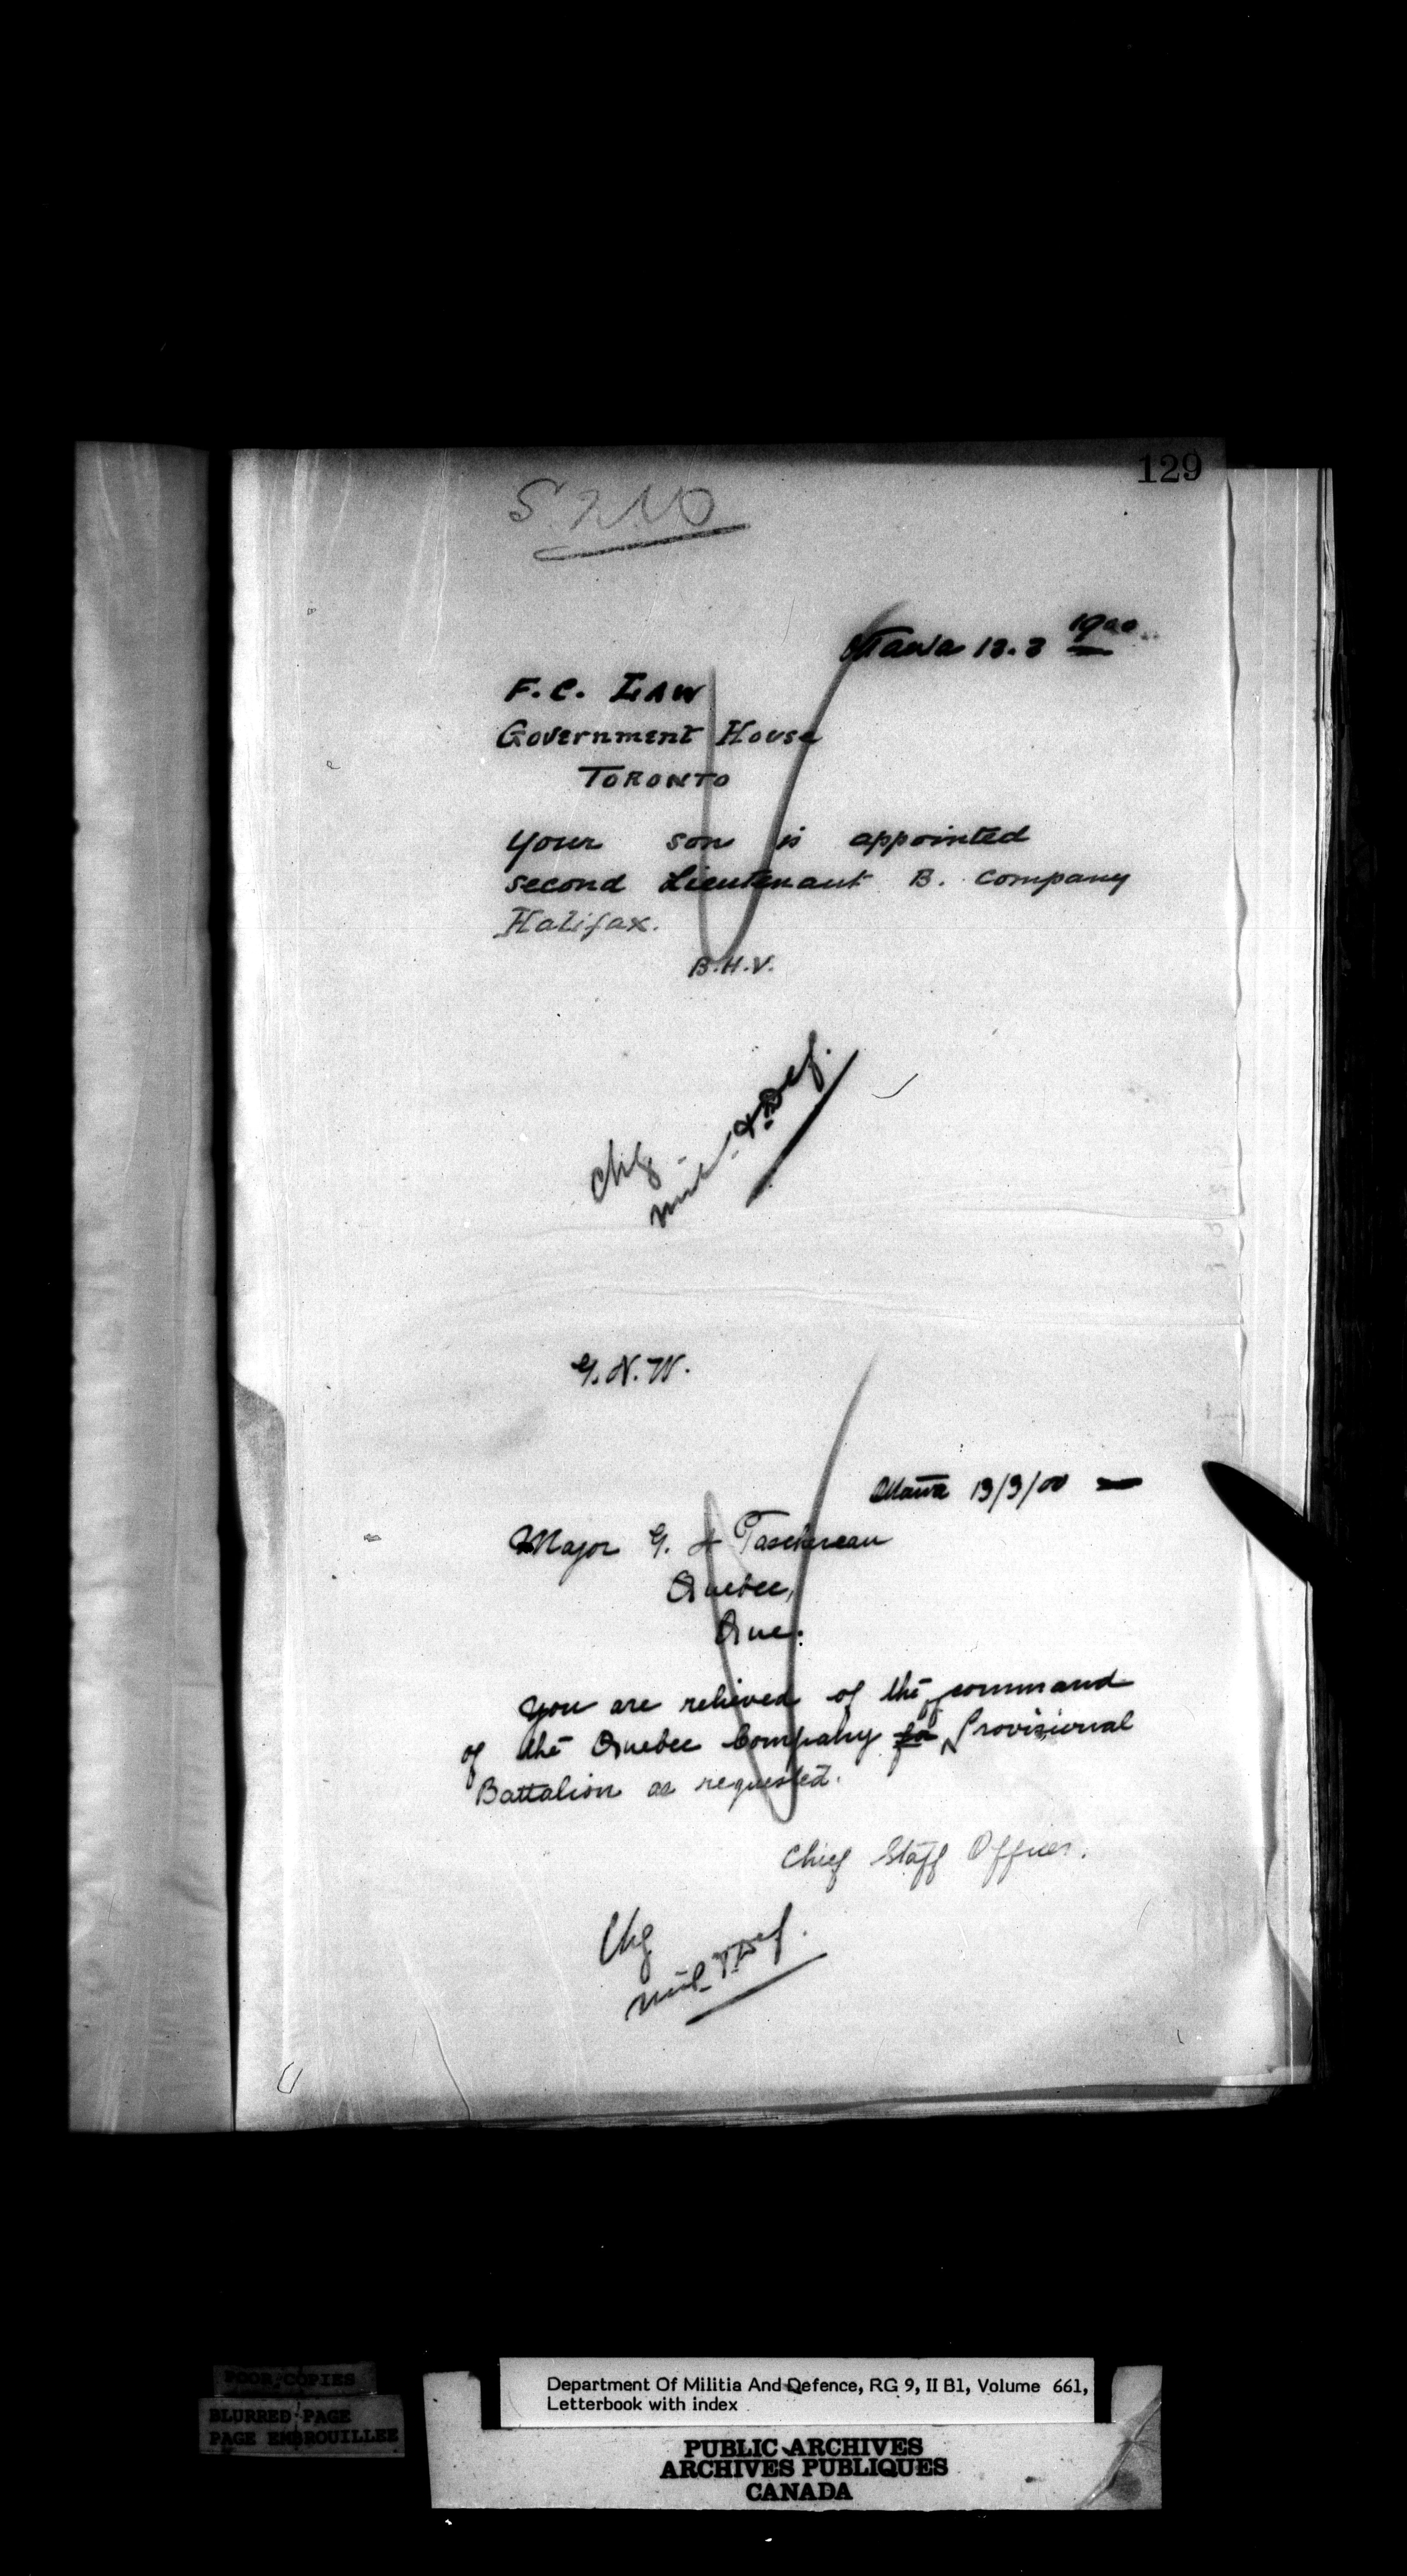 129
Ottawa 13.3 1900
F.C. LAW
Government House
TORONTO
Your son is appointed
second Lieutenant B. Company
Halifax.
B.H.V.
Chg
Mil. & Def.
G.N.W.
Ottawa 13/3/00
Major G. Taschereau
Quebec,
Que.
You are relieved of the command
of the Quebec Company for Provisional
Battalion as requested.
Chief Staff Officer.
Chg
Mil & Def.
POOR COPIES
BLURRED PAGE
PAGE EMBROUILLEE
Department Of Militia And Defence, RG 9, II B1, Volume 661,
Letterbook with index
PUBLIC ARCHIVES
ARCHIVES PUBLIQUES
CANADA